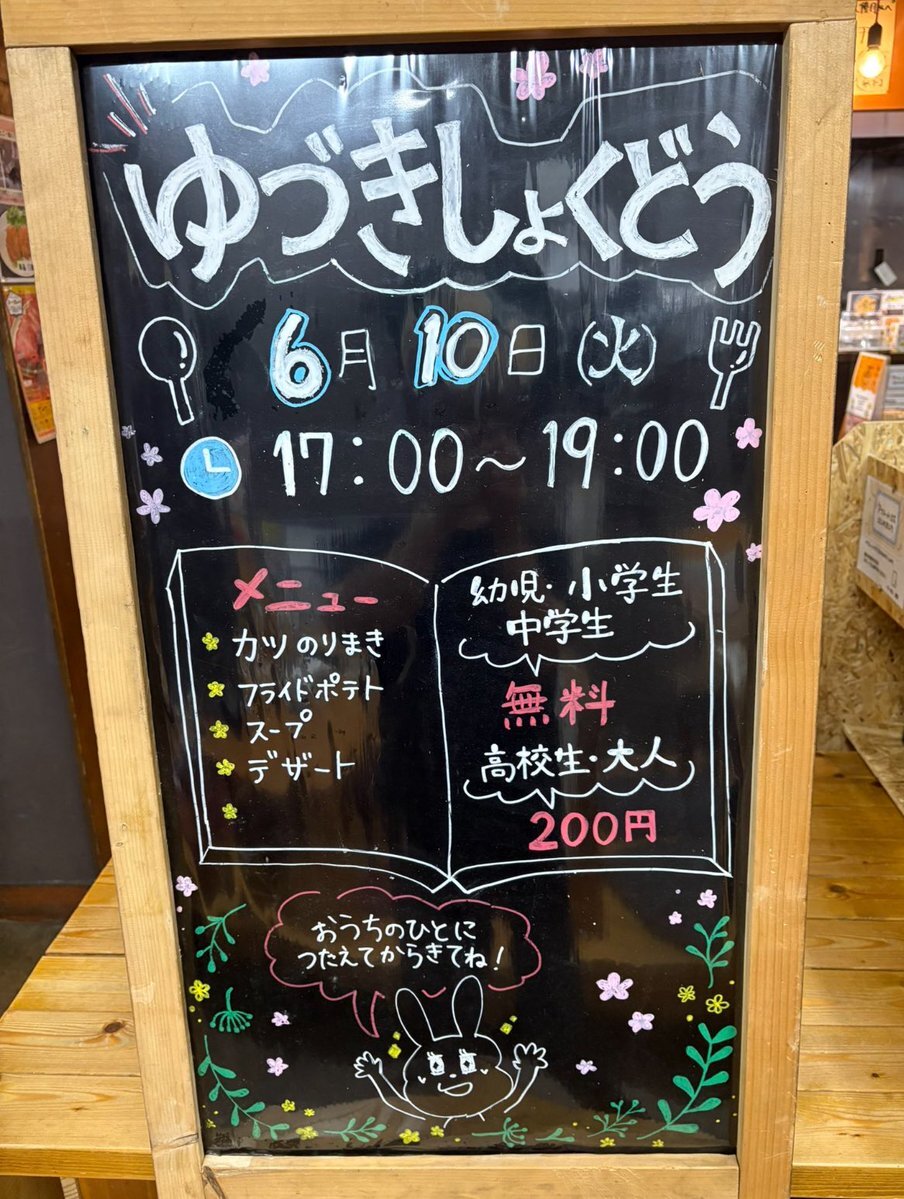 ゆづきしょくどう
6月 10日 (火)
17:00〜19:00
メニュー
カツのりまき
フライドポテト
スープ
デザート
幼児・小学生
中学生
無料
高校生・大人
200円
おうちのひとに
つたえてからきてね!